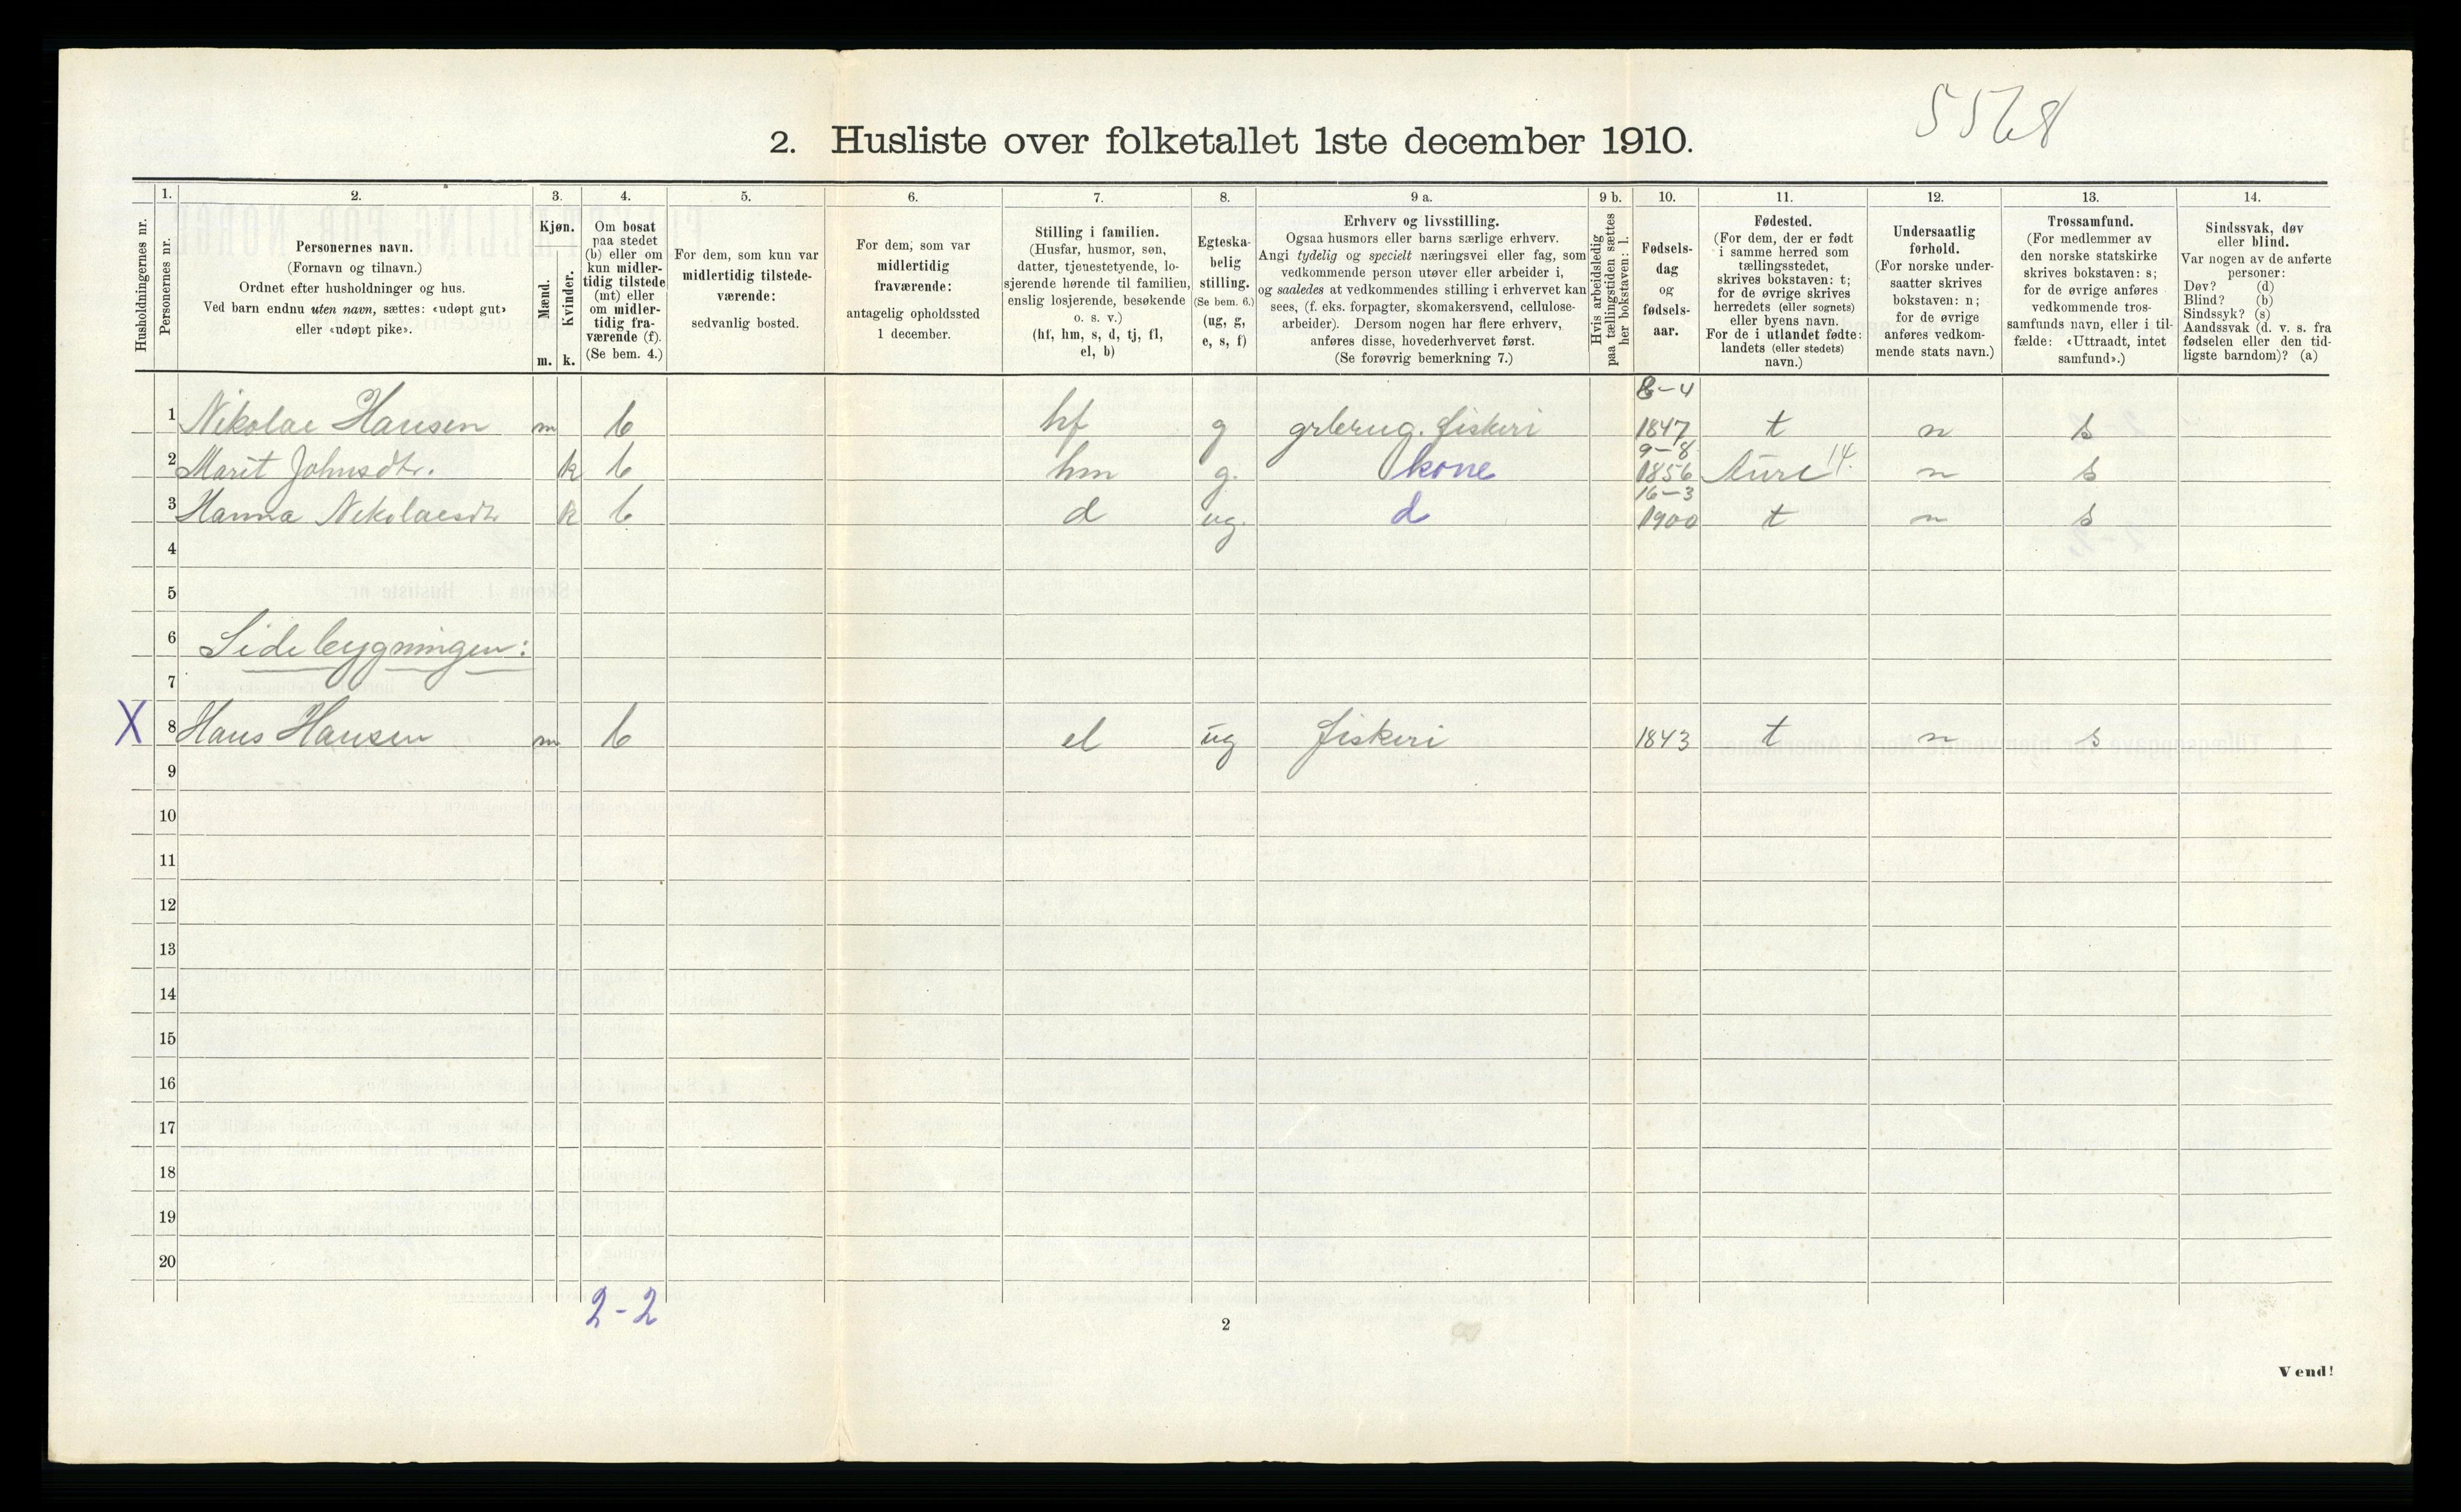 5568
2. Husliste over folketallet 1ste december 1910.
Husholdningernes nr.
1.
Personernes nr.
2.
Personernes navn.
(Fornavn og tilnavn.)
Ordnet efter husholdninger og hus.
Ved barn endnu uten navn, sættes: «udøpt gut»
eller «udøpt pike».
3.
Kjøn.
Mænd.
Kvinder.
m. k.
4.
Om bosat
paa stedet
(b) eller om
kun midler-
tidig tilstede
(mt) eller
om midler-
tidig fra-
værende (f).
(Se bem. 4.)
5.
For dem, som kun var
midlertidig tilstede-
værende:
sedvanlig bosted.
6.
For dem, som var
midlertidig
fraværende:
antagelig opholdssted
1 december.
7.
Stilling i familien.
(Husfar, husmor, søn,
datter, tjenestetyende, lo-
sjerende hørende til familien,
enslig losjerende, besøkende
o. s. v.)
(hf, hm, s, d, tj, fl,
el, b)
8.
Egteska-
belig
stilling.
(Se bem. 6.)
(ug, g,
e, s, f)
9 a.
Erhverv og livsstilling.
Ogsaa husmors eller barns særlige erhverv.
Angi tydelig og specielt næringsvei eller fag, som
vedkommende person utøver eller arbeider i,
og saaledes at vedkommendes stilling i erhvervet kan
sees, (f. eks. forpagter, skomakersvend, cellulose-
arbeider). Dersom nogen har flere erhverv,
anføres disse, hovederhvervet først.
(Se forøvrig bemerkning 7.)
9 b.
Hvis arbeidsledig
paa tællingstiden sættes
her bokstaven: l.
10.
Fødsels-
dag
og
fødsels-
aar.
11.
Fødested.
(For dem, der er født
i samme herred som
tællingsstedet,
skrives bokstaven: t;
for de øvrige skrives
herredets (eller sognets)
eller byens navn.
For de i utlandet fødte:
landets (eller stedets)
navn.)
12.
Undersaatlig
forhold.
(For norske under-
saatter skrives
bokstaven: n;
for de øvrige
anføres vedkom-
mende stats navn.)
13.
Trossamfund.
(For medlemmer av
den norske statskirke
skrives bokstaven: s;
for de øvrige anføres
vedkommende tros-
samfunds navn, eller i til-
fælde: «Uttraadt, intet
samfund».)
14.
Sindssvak, døv
eller blind.
Var nogen av de anførte
personer:
Døv? (d)
Blind? (b)
Sindssyk? (s)
Aandssvak (d. v. s. fra
fødselen eller den tid-
ligste barndom)? (a)
8-4
1 Nikolai Hansen m b hf g grbrug. fiskeri 1847 t n s
9-8
2 Marit Johnsdtr. k b hm g. kone 1856 Aure 14. n s
16-3
3 Hanna Nikolaesdtr k b d ug. d 1900 t n s
4
5
6 Sidebygningen:
7
X 8 Hans Hansen m b el ug fiskeri 1843 t n s
9
10
11
12
13
14
15
16
17
18
19
20
2-2
2
Vend!